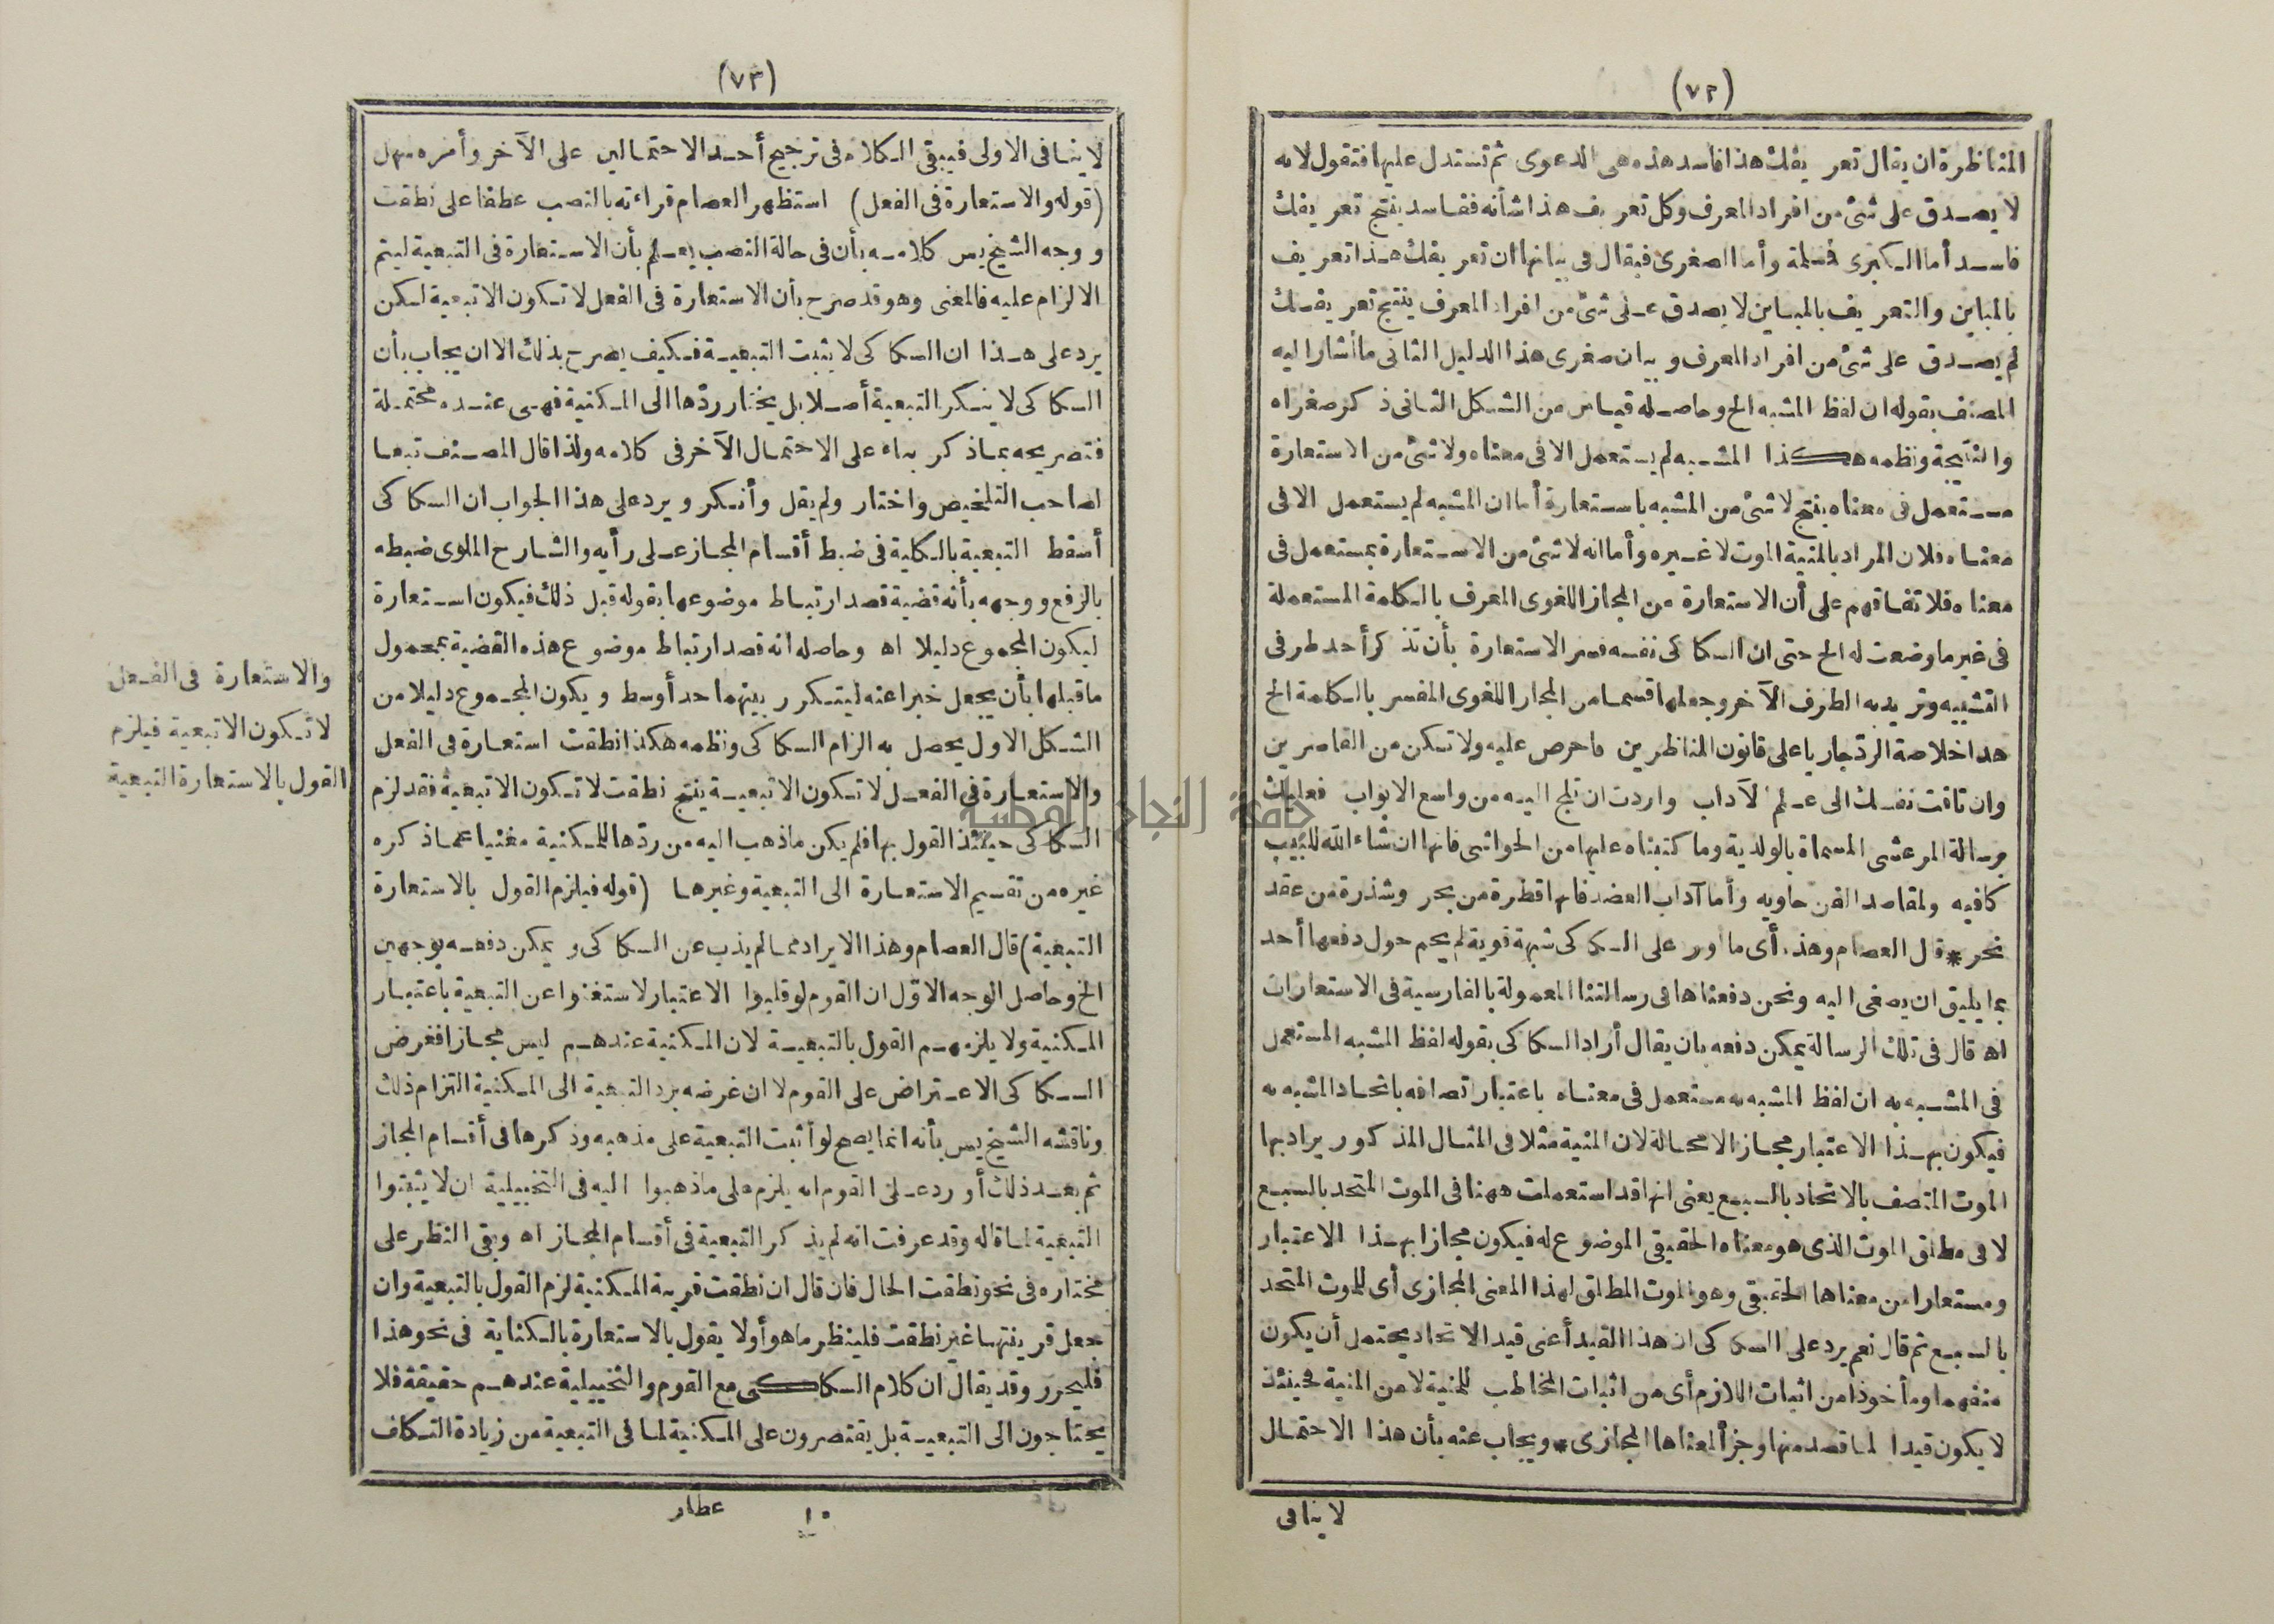 (٧٢)
المناظرة ان يقال تعريفك هذا فاسد هذه هى الدعوى ثم تستدل عليها فتقول لانه
لا يصدق على شئ من افراد المعرف وكل تعريف هذا شأنه ففاسد ينتج تعريفك
فاسد أما الكبرى فسلمة وأما الصغرى فيقال فى بيانها ان تعريفك هذا تعريف
بالمباين والتعريف بالمباين لا يصدق على شئ من افراد المعرف ينتج تعريفك
لم يصدق على شئ من افراد المعرف وبيان صغرى هذا الدليل الثانى ما أشار اليه
المصنف بقوله ان لفظ المشبه الخ وحاصله قياس من الشكل الثانى ذكر صغراه
والنتيجة ونظمه هكذا المشبه لم يستعمل الا فى معناه ولا شئ من الاستعارة
مستعمل فى معناه ينتج لا شئ من المشبه باستعارة أما ان المشبه لم يستعمل الا فى
معناه فلان المراد بالمنية الموت لا غيره وأما انه لا شئ من الاستعارة بمستعمل فى
معناه فلاتفاقهم على أن الاستعارة من المجاز اللغوى المعرف بالكلمة المستعملة
فى غير ما وضعت له الخ حتى ان السكاكى نفسه فسر الاستعارة بأن تذكر أحد طرفى
التشبيه وتريد به الطرف الآخر وجعلها قسما من المجاز اللغوى المفسر بالكلمة الخ
هذا خلاصة الرد جاريا على قانون المناظرين فاحرص عليه ولا تكن من القاصرين
وان تاقت نفسك الى علم الآداب واردت ان تلج اليه من واسع الابواب فعليك
برسالة المرعشى المسماة بالولدية وما كتبناه عليها من الحواشى فانها ان شاء الله للبيب
كافيه ولمقاصد الفن حاويه وأما آداب العضد فانها قطرة من بحر وشذرة من عقد
نحر * قال العصام وهذه أى ما اورد على السكاكى شبهة قوية لم يحم حول دفعها أحد
بما يليق ان يصغى اليه ونحن دفعناها فى رسالتنا المعمولة بالفارسية فى الاستعارات
اه قال فى تلك الرسالة يمكن دفعه بان يقال أراد السكاكى بقوله لفظ المشبه المستعمل
فى المشبه به ان لفظ المشبه به مستعمل فى معناه باعتبار تصافه باتحاد المشبه به
فيكون بهذا الاعتبار مجازا لا محالة لان المنية مثلا فى المثال المذكور يراد بها
الموت المتصف بالاتحاد بالسبع يعنى انها قد استعملت ههنا فى الموت المتحد بالسبع
لا فى مطلق الموت الذى هو معناه الحقيقى الموضوع له فيكون مجازا بهذا الاعتبار
ومستعارا من معناها الحقيقى وهو الموت المطلق لهذا المعنى المجازى أى للموت المتحد
بالسبع ثم قال نعم يرد على السكاكى ان هذا القيد أعنى قيد الاتحاد يحتمل أن يكون
منفهما ومأخوذا من اثبات اللازم أى من اثبات المخاطب للمنية لا من المنية فحينئذ
لا يكون قيدا لما قصد منها وجزأ لمعناها المجازى * ويجاب عنه بأن هذا الاحتمال
لا ينافى
(٧٣)
لا ينافى الاولى فيبقى الكلام فى ترجيح أحد الاحتمالين على الآخر وأمره سهل
(قوله والاستعارة فى الفعل) استظهر العصام قراءته بالنصب عطفا على نطقت
ووجه الشيخ يس كلامه بأن فى حالة النصب يعلم بأن الاستعارة فى التبعية ليتم
الالزام عليه فالمعنى وهو قد صرح بأن الاستعارة فى الفعل لا تكون الا تبعية لكن
يرد على هذا ان السكاكى لا يثبت التبعية فكيف يصرح بذلك الا ان يجاب بأن
السكاكى لا ينكر التبعية أصلا بل يختار ردّها الى المكنية فهى عنده محتملة
فتصريحه بما ذكر بناء على الاحتمال الآخر فى كلامه ولذا قال المصنف تبعا
لصاحب التلخيص واختار ولم يقل وأنكر ويرد على هذا الجواب ان السكاكى
أسقط التبعية بالكلية فى ضبط أقسام المجاز على رأيه والشارح الملوى ضبطه
بالرفع ووجهه بأنه قضية قصد ارتباط موضوعها بقوله قبل ذلك فيكون استعارة
ليكون المجموع دليلا اه وحاصله انه قصد ارتباط موضوع هذه القضية بمحمول
ما قبلها بأن يجعل خبرا عنه ليتكرر بينهما حد أوسط ويكون المجموع دليلا من
الشكل الاول يحصل به الزام السكاكى ونظمه هكذا نطقت استعارة فى الفعل
والاستعارة فى الفعل لا تكون الا تبعية ينتج نطقت لا تكون الا تبعية فقد لزم
السكاكى حينئذ القول بها فلم يكن ما ذهب اليه من ردّها للمكنية مغنيا عما ذكره
غيره من تقسيم الاستعارة الى التبعية وغيرها (قوله فيلزم القول بالاستعارة
التبعية) قال العصام وهذا الايراد مما لم يذب عن السكاكى ويمكن دفعه بوجهين
الخ وحاصل الوجه الاوّل ان القوم لو قلبوا الاعتبار لاستغنوا عن التبعية باعتبار
المكنية ولا يلزمهم القول بالتبعية لان المكنية عندهم ليس مجازا فغرض
السكاكى الاعتراض على القوم لا ان غرضه برد التبعية الى المكنية التزام ذلك
وناقشه الشيخ يس بأنه انما يصح لو أثبت التبعية على مذهبه وذكرها فى أقسام المجاز
ثم بعد ذلك أورد على القوم انه يلزم على ما ذهبوا اليه فى التخييلية ان لا يثبتوا
التبعية لما قاله وقد عرفت انه لم يذكر التبعية فى أقسام المجاز اه وبقى النظر على
مختاره فى نحو نطقت الحال فان قال ان نطقت قرينة المكنية لزم القول بالتبعية وان
جعل قرينتها غير نطقت فلينظر ما هو أولا يقول بالاستعارة بالكناية فى نحو هذا
فليحرر وقد يقال ان كلام السكاكى مع القوم والتخييلية عندهم حقيقة فلا
يحتاجون الى التبعية بل يقتصرون على المكنية لما فى التبعية من زيادة التكلف
والاستعارة فى الفعل
لا تكون الا تبعية فيلزم
القول بالاستعارة التبعية
١٠ عطار
جامعة النجاح الوطنية